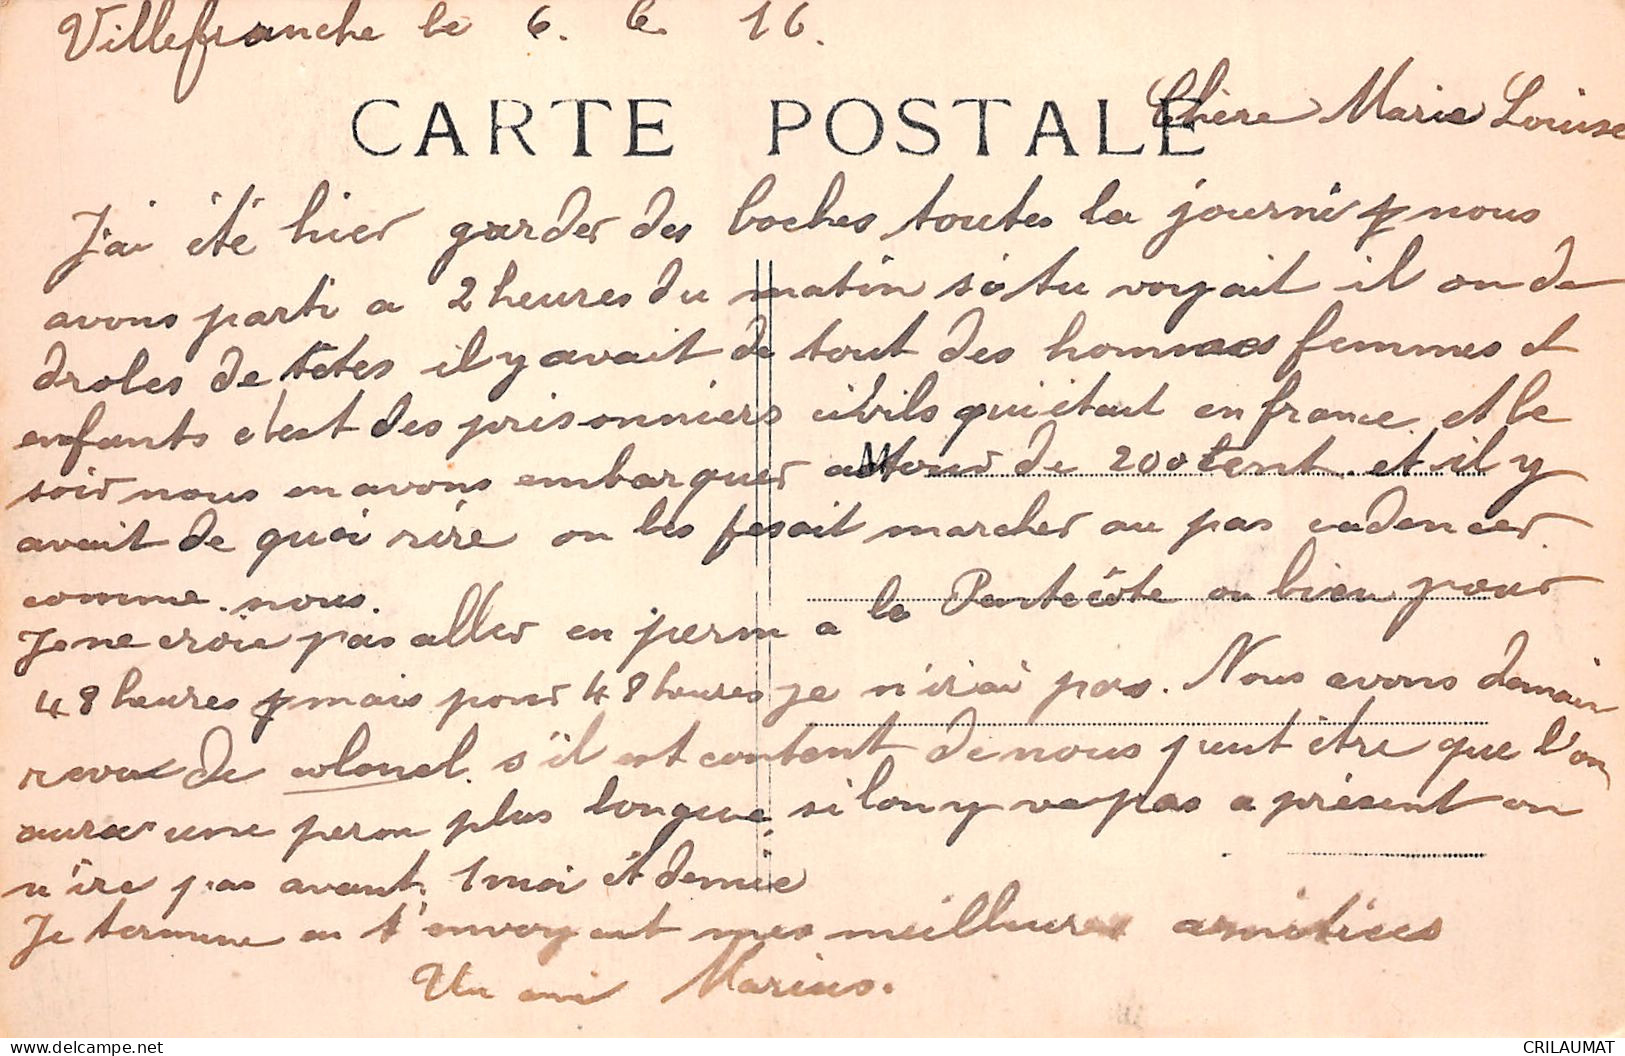 Villefranche le 6. 6. 16.
CARTE POSTALE
Chère Marie Louise
J'ai été hier garder des boches toutes la journé nous
avons parti a 2 heures du matin si tu voyait il on de
droles de têtes il y avait de tout des hommes femmes et
enfants c'est des prisonniers civils qui était en france et le
soir nous en avons embarquer autour de 200 cent. et il y
avait de quoi rire on les fesait marcher au pas cadencer
comme nous.
Je ne croie pas aller en perm a la Pentecôte ou bien pour
48 heures mais pour 48 heures je n'irai pas. Nous avons demain
revue de colonel s'il est content de nous peut être que l'on
aura une perm plus longue, si lon y va pas a présent on
n'ire pas avant 1 moi et demie
Je termine en t'envoyant mes meilleures amitiées
Un ami Marius.
CRILAUMAT